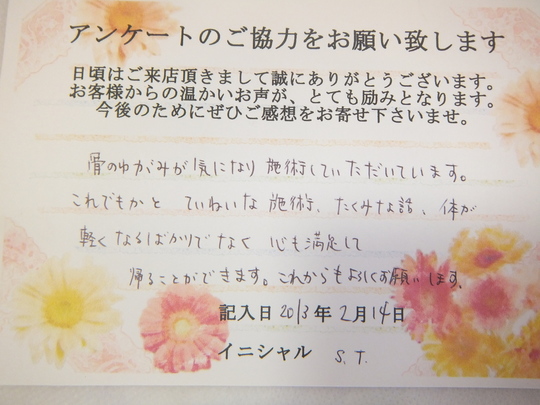 アンケートのご協力をお願い致します
日頃はご来店頂きまして誠にありがとうございます。
お客様からの温かいお声が、とても励みとなります。
今後のためにぜひご感想をお寄せ下さいませ。
骨のゆがみが気になり施術していただいています。
これでもかと ていねいな施術、たくみな話、体が
軽くなるばかりでなく 心も満足して
帰ることができます。これからもよろしくお願いします。
記入日 2013年 2月14日
イニシャル S.T.